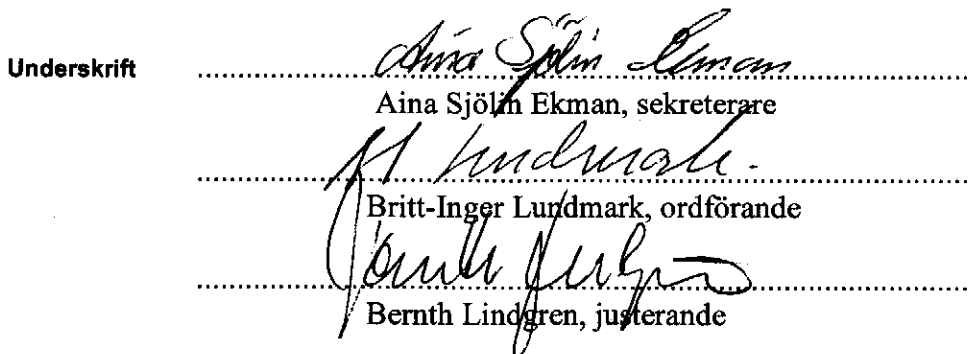 Underskrift
Aina Sjölin Ekman
Aina Sjölin Ekman, sekreterare
Lundmark.
Britt-Inger Lundmark, ordförande
Bernth Lindgren, justerande